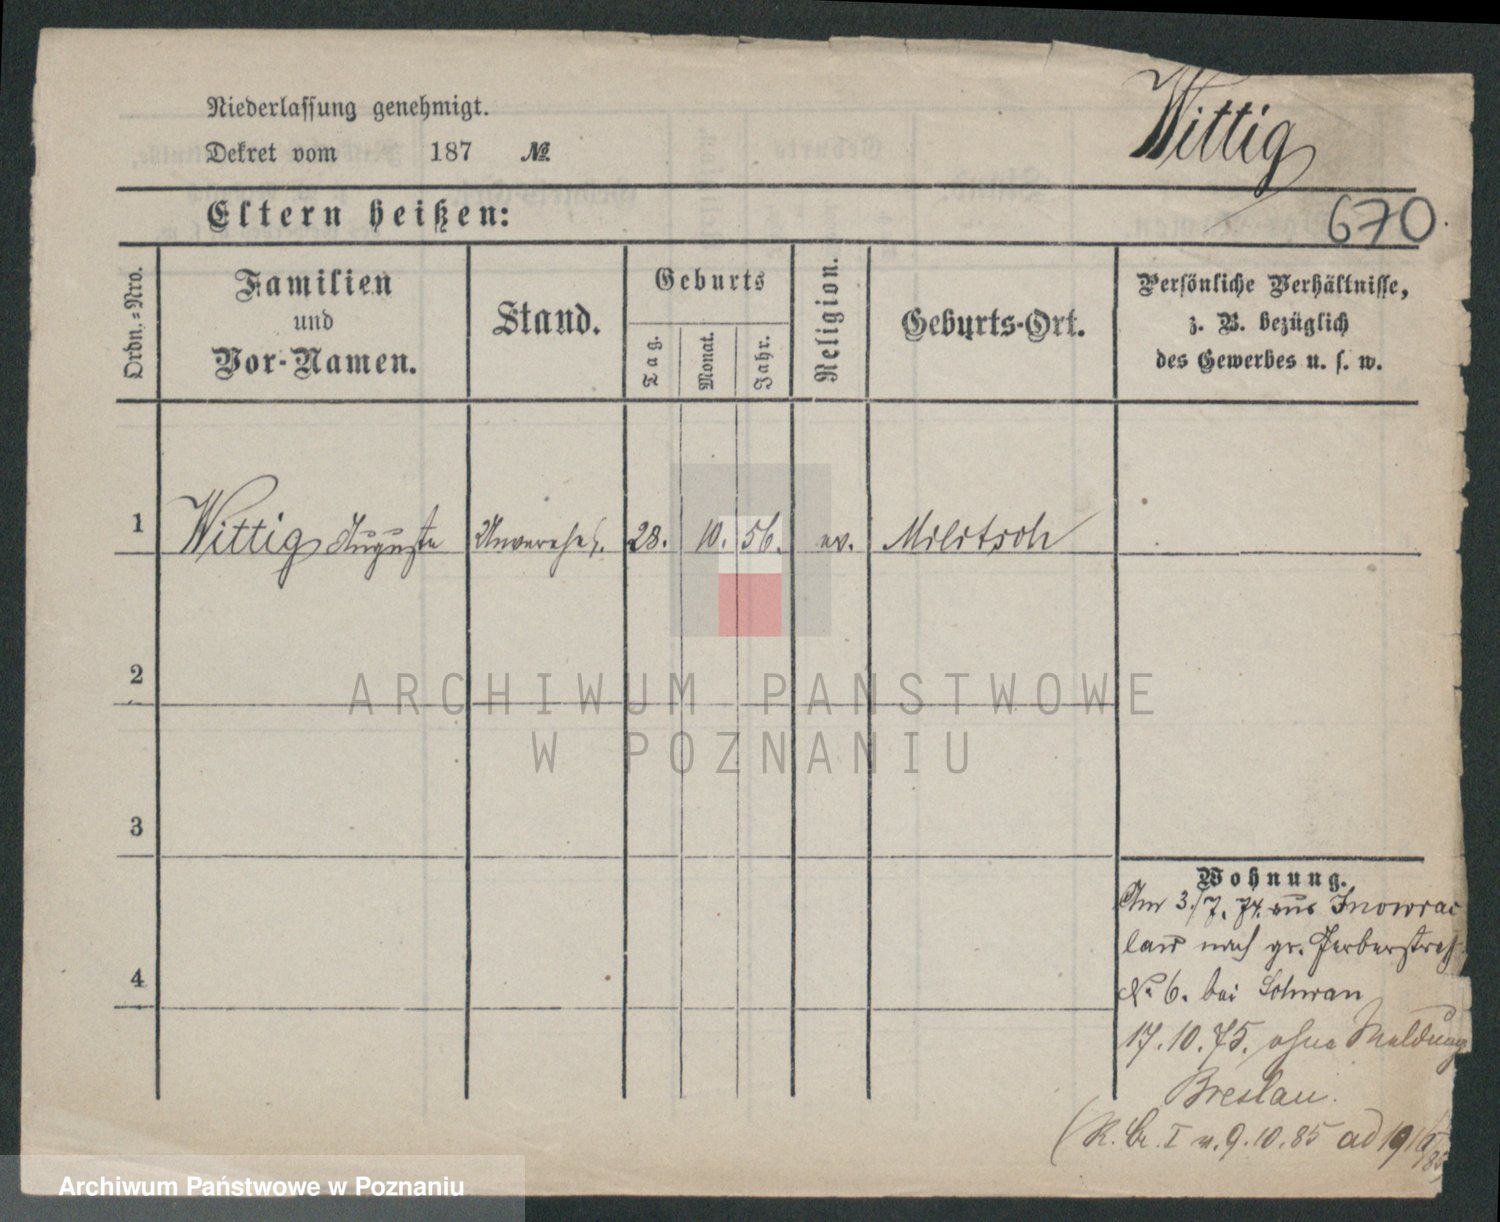 Niederlassung genehmigt.
Dekret vom 187 №
Wittig
Eltern heißen:
670.
Ordn.-Nro.
Familien
und
Vor-Namen.
Stand.
Geburts
Tag.
Monat.
Jahr.
Religion.
Geburts-Ort.
Persönliche Verhältnisse,
z. B. bezüglich
des Gewerbes u. s. w.
1 Wittig Auguste Unverehel. 28. 10. 56. ev. Militsch
2
ARCHIWUM PAŃSTWOWE
W POZNANIU
3
Wohnung.
Am 3./7. 74. aus Inowrac
law nach gr. Gerberstraß
№ 6. bei
4
17.10.75. ohne Meldung
Breslau.
(R. Br. I v. 9.10.85 ad
Archiwum Państwowe w Poznaniu